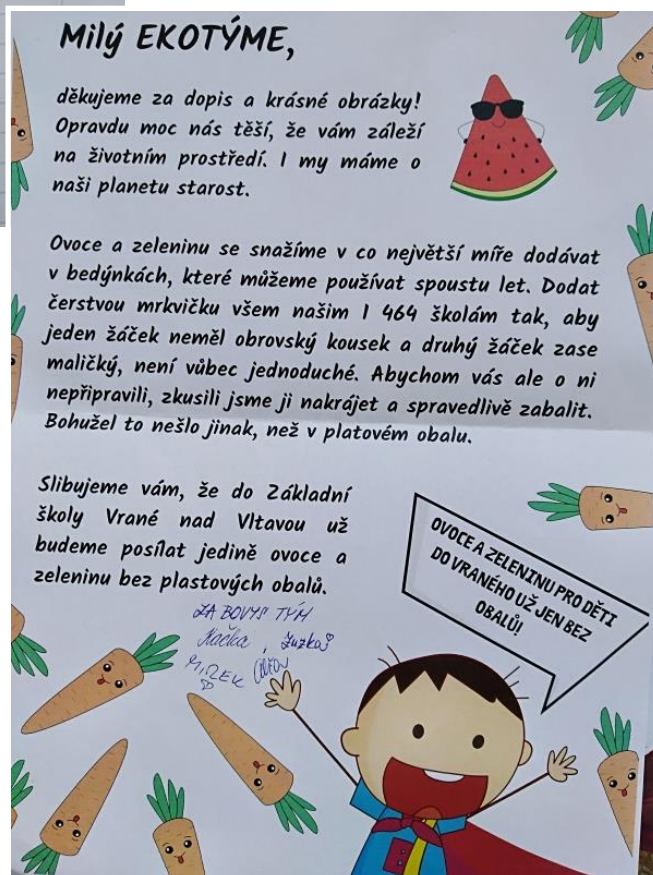 Milý EKOTÝME,
děkujeme za dopis a krásné obrázky!
Opravdu moc nás těší, že vám záleží
na životním prostředí. I my máme o
naši planetu starost.
Ovoce a zeleninu se snažíme v co největší míře dodávat
v bedýnkách, které můžeme používat spoustu let. Dodat
čerstvou mrkvičku všem našim 1 464 školám tak, aby
jeden žáček neměl obrovský kousek a druhý žáček zase
maličký, není vůbec jednoduché. Abychom vás ale o ni
nepřipravili, zkusili jsme ji nakrájet a spravedlivě zabalit.
Bohužel to nešlo jinak, než v platovém obalu.
Slibujeme vám, že do Základní
školy Vrané nad Vltavou už
budeme posílat jedině ovoce a
zeleninu bez plastových obalů.
OVOCE A ZELENINU PRO DĚTI
DO VRANÉHO UŽ JEN BEZ
OBALŮ!
ZA BOVYS TÝM
Kačka, Zuzka
MIREK